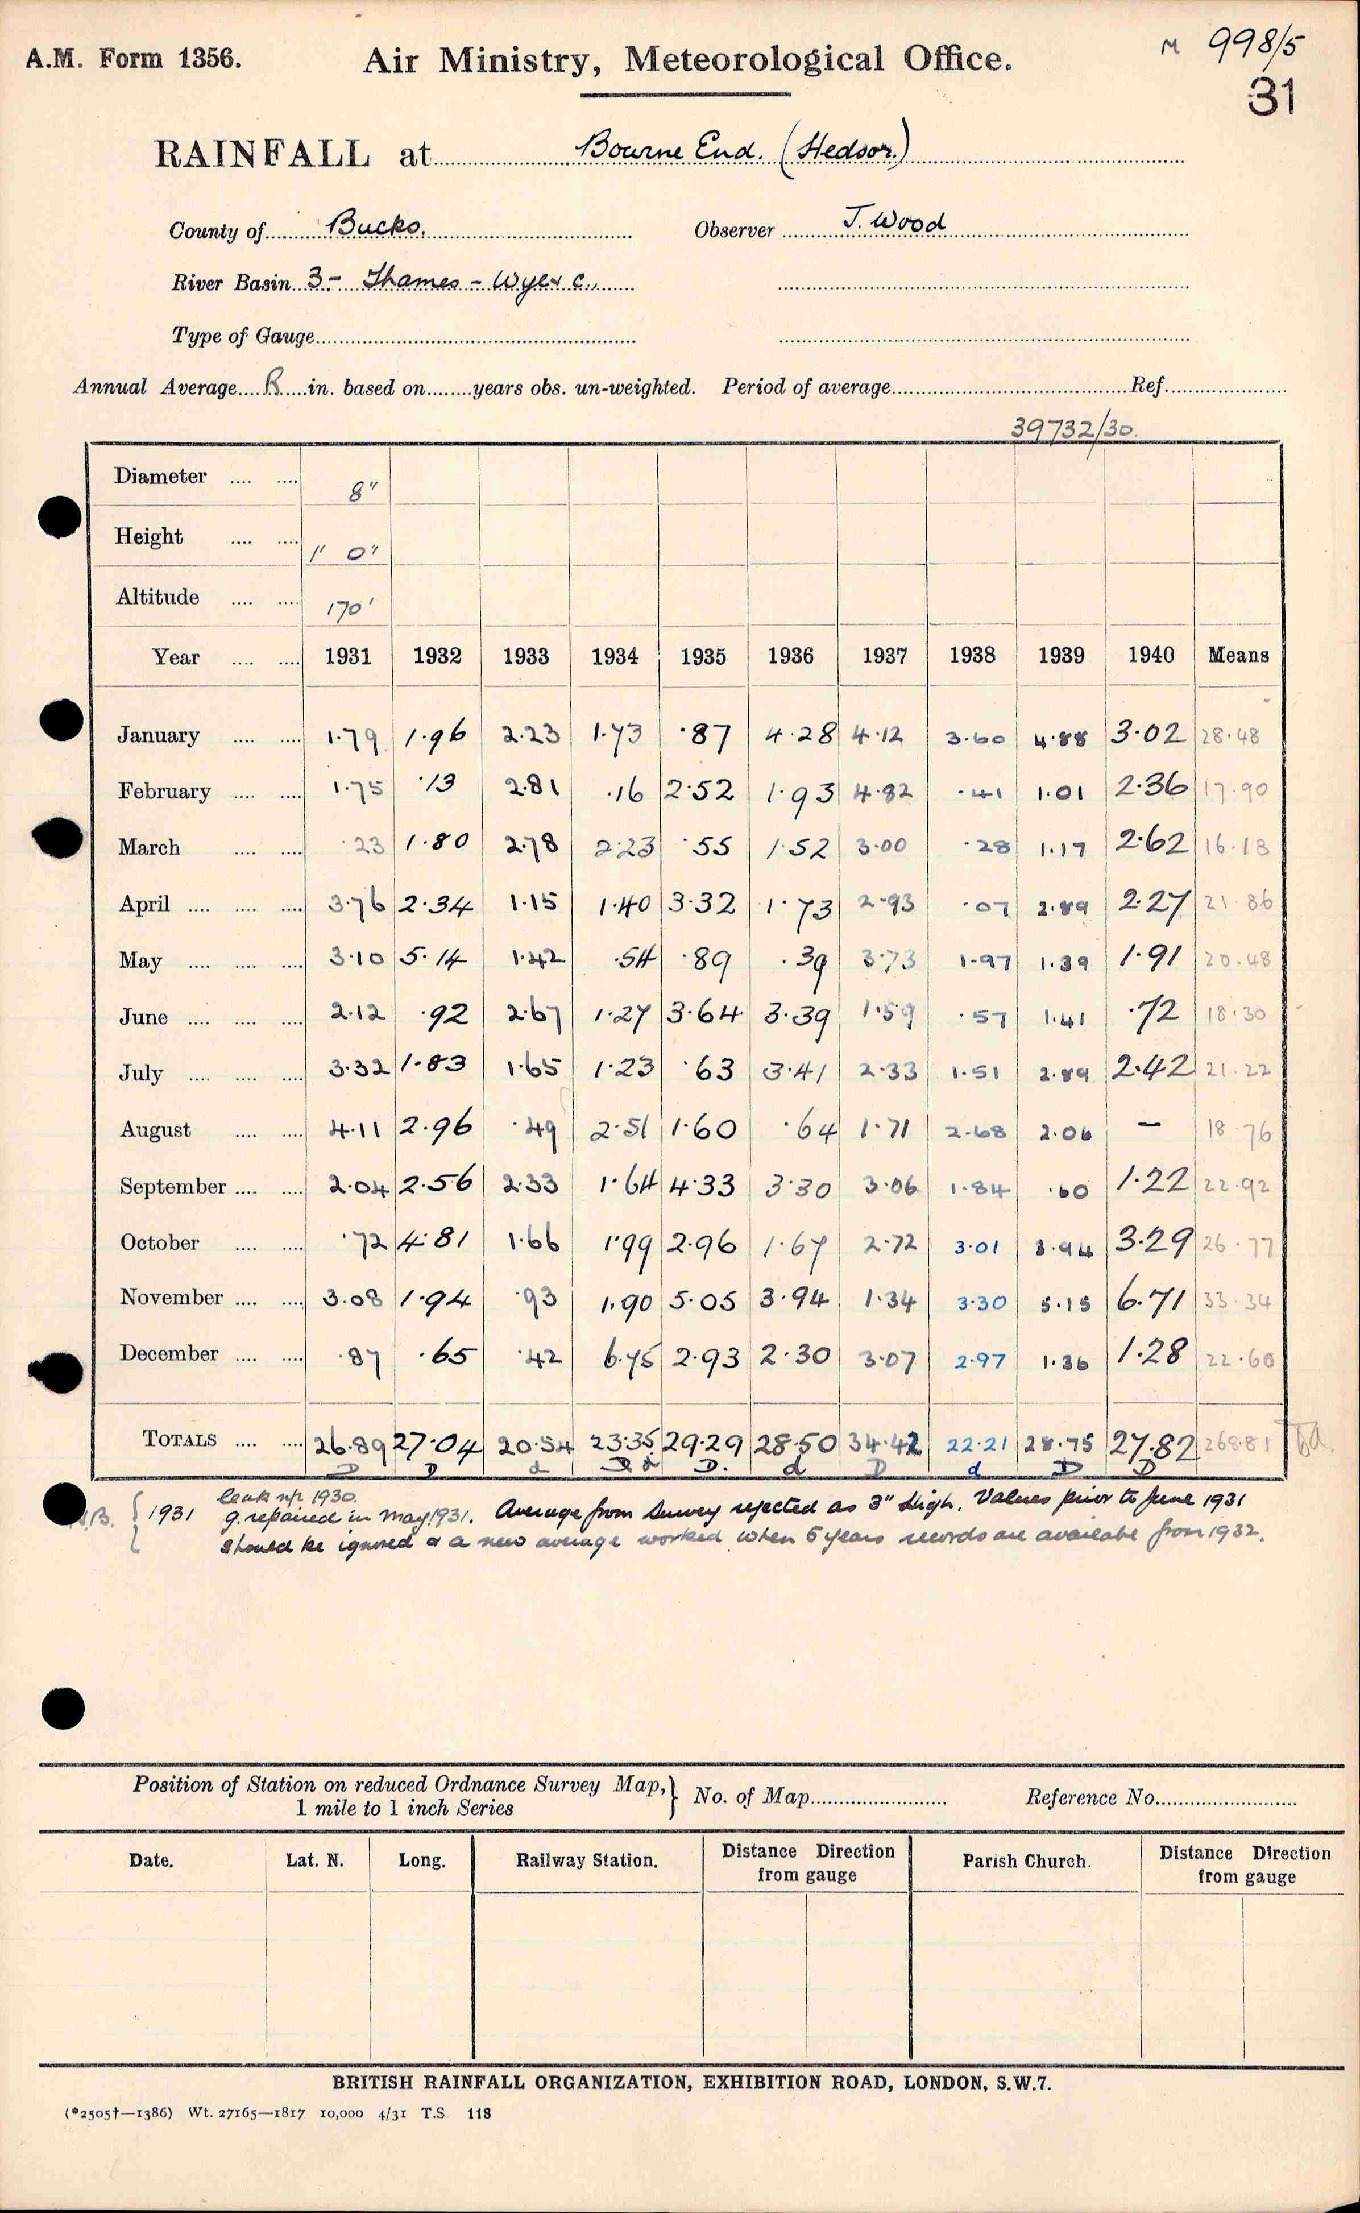 A.M. Form 1356.
Air Ministry, Meteorological Office.
M 998/5
31
RAINFALL at Bourne End. (Hedsor.)
County of Bucks. Observer J. Wood
River Basin 3 - Thames - Wye & c.
Type of Gauge
Annual Average R in. based on years obs. un-weighted. Period of average Ref.
39732/30.
Diameter 8"
Height 1' 0"
Altitude 170'
Year 1931 1932 1933 1934 1935 1936 1937 1938 1939 1940 Means
January 1.79 1.96 2.23 1.73 .87 4.28 4.12 3.60 4.88 3.02 28.48
February 1.75 .13 2.81 .16 2.52 1.93 4.82 .41 1.01 2.36 17.90
March .23 1.80 2.78 2.23 .55 1.52 3.00 .28 1.17 2.62 16.18
April 3.76 2.34 1.15 1.40 3.32 1.73 2.93 .07 2.89 2.27 21.86
May 3.10 5.14 1.42 .54 .89 .39 3.73 1.97 1.39 1.91 20.48
June 2.12 .92 2.67 1.27 3.64 3.39 1.59 .57 1.41 .72 18.30
July 3.32 1.83 1.65 1.23 .63 3.41 2.33 1.51 2.89 2.42 21.22
August 4.11 2.96 .49 2.51 1.60 .64 1.71 2.68 2.06 — 18.76
September 2.04 2.56 2.33 1.64 4.33 3.30 3.06 1.84 .60 1.22 22.92
October .72 4.81 1.66 1.99 2.96 1.67 2.72 3.01 3.94 3.29 26.77
November 3.08 1.94 .93 1.90 5.05 3.94 1.34 3.30 5.15 6.71 33.34
December .87 .65 .42 6.75 2.93 2.30 3.07 2.97 1.36 1.28 22.60
TOTALS 26.89 27.04 20.54 23.35 29.29 28.50 34.42 22.21 28.75 27.82 268.81
D D d D d D. d D d D D
leak n/r 1930.
N.B. { 1931 g. repaired in May 1931. Average from Survey rejected as 3" high. Values prior to June 1931
should be ignored & a new average worked when 5 years records are available from 1932.
Position of Station on reduced Ordnance Survey Map, } No. of Map Reference No.
1 mile to 1 inch Series
Date. Lat. N. Long. Railway Station. Distance Direction from gauge Parish Church. Distance Direction from gauge
BRITISH RAINFALL ORGANIZATION, EXHIBITION ROAD, LONDON, S.W.7.
(*2505†—1386) Wt. 27165—1817 10,000 4/31 T.S 118